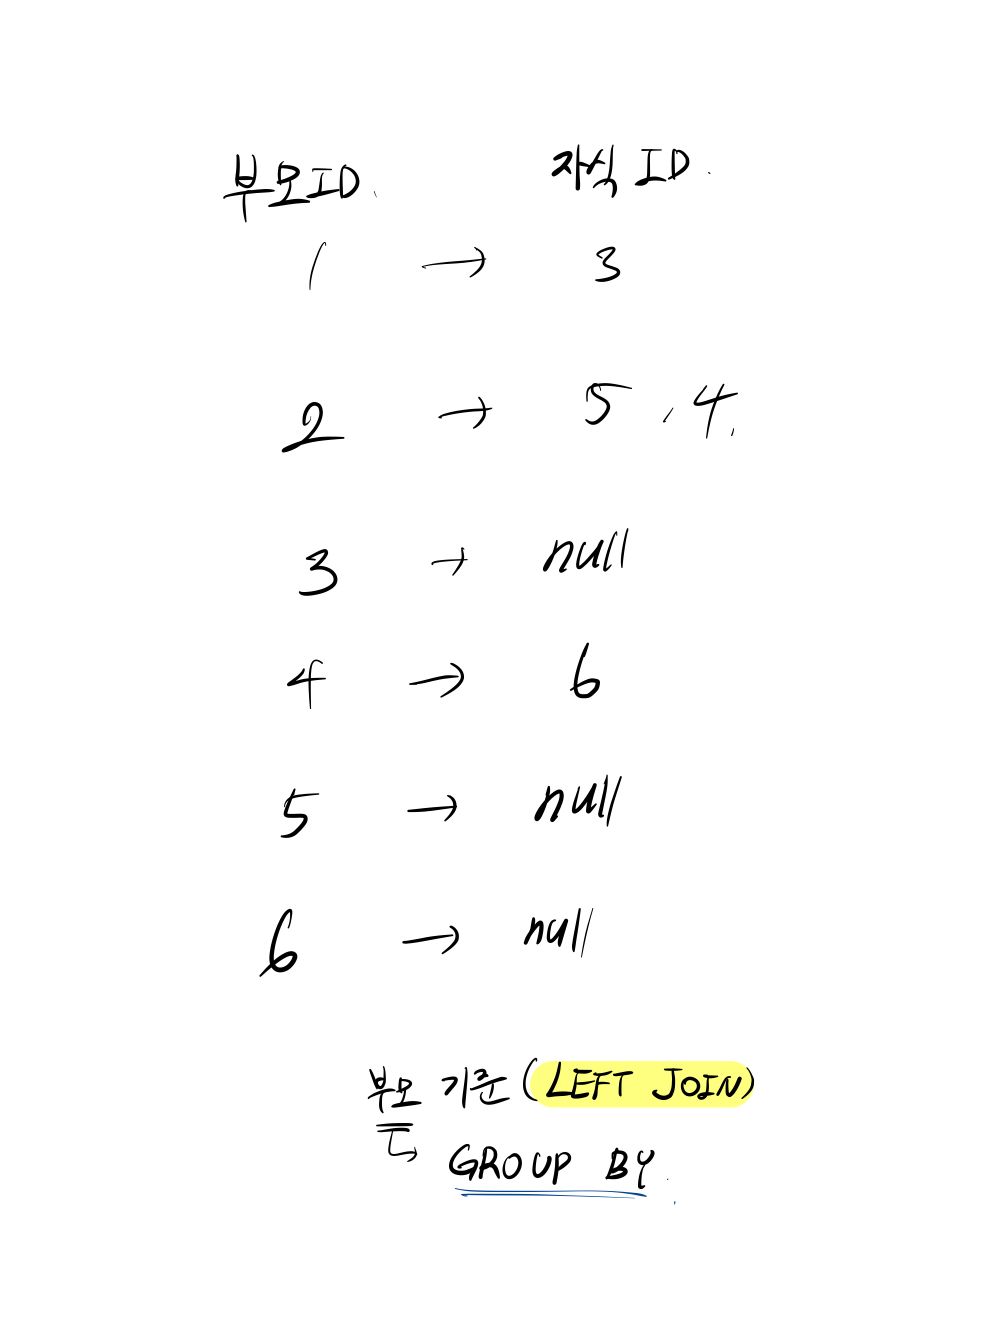 부모ID. 자식 ID.
1 → 3
2 → 5, 4.
3 → null
4 → 6
5 → null
6 → null
부모 기준 (LEFT JOIN)
↳ GROUP BY.